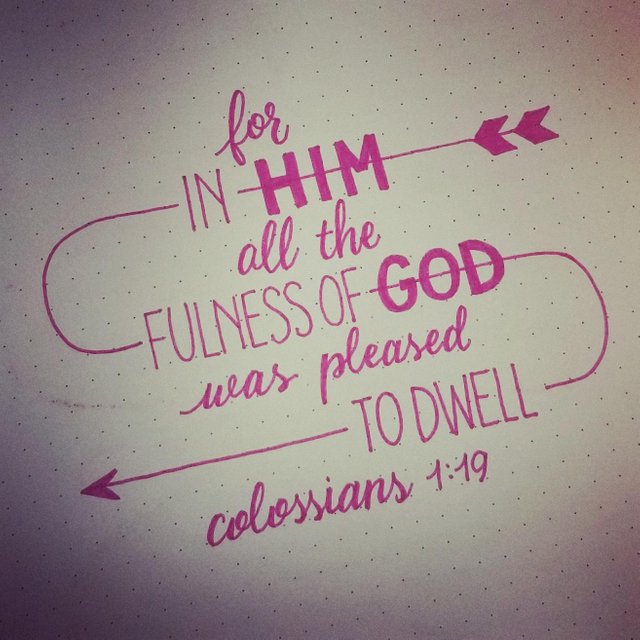 for
IN HIM
all the
FULNESS OF GOD
was pleased
TO DWELL
colossians 1:19